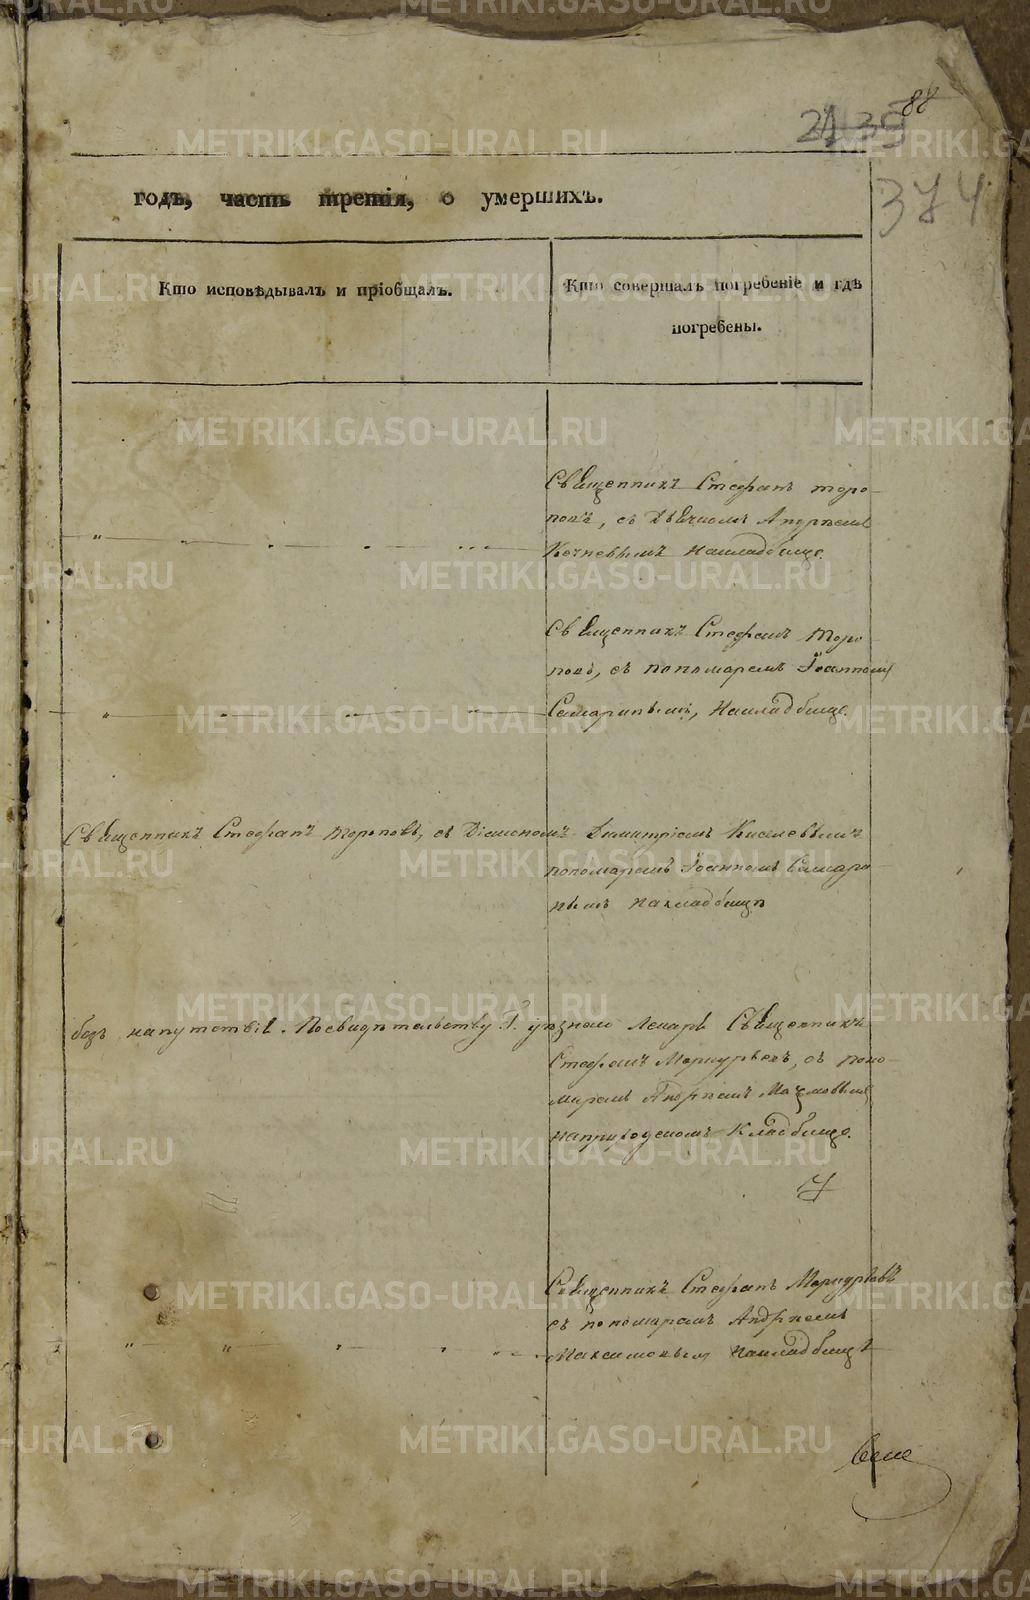 88
2439
374
годъ, часть третія, о умершихъ.
Кто исповѣдывалъ и пріобщалъ.
Кто совершалъ погребеніе и гдѣ
погребены.
Священникъ Стефанъ Торо-
повъ, съ Дьячкомъ Андреемъ
на кладбище.
Священникъ Стефанъ Торо-
повъ, съ пономаремъ Іоанномъ
Самаринымъ, на кладбище.
Священникъ Стефанъ Тороповъ, съ Діакономъ Димитріемъ Киселевымъ
пономаремъ Іоанномъ Самари-
нымъ на кладбищѣ
безъ напутствія. По свидѣтельству Г. уѣзного Лекаря Священникъ
Стефанъ Меркурьевъ, съ поно-
маремъ Андреемъ Максимовымъ
на градскомъ Кладбище.
Священникъ Стефанъ Меркурьевъ
съ пономаремъ Андреемъ
Максимовымъ на кладбищѣ
METRIKI.GASO-URAL.RU